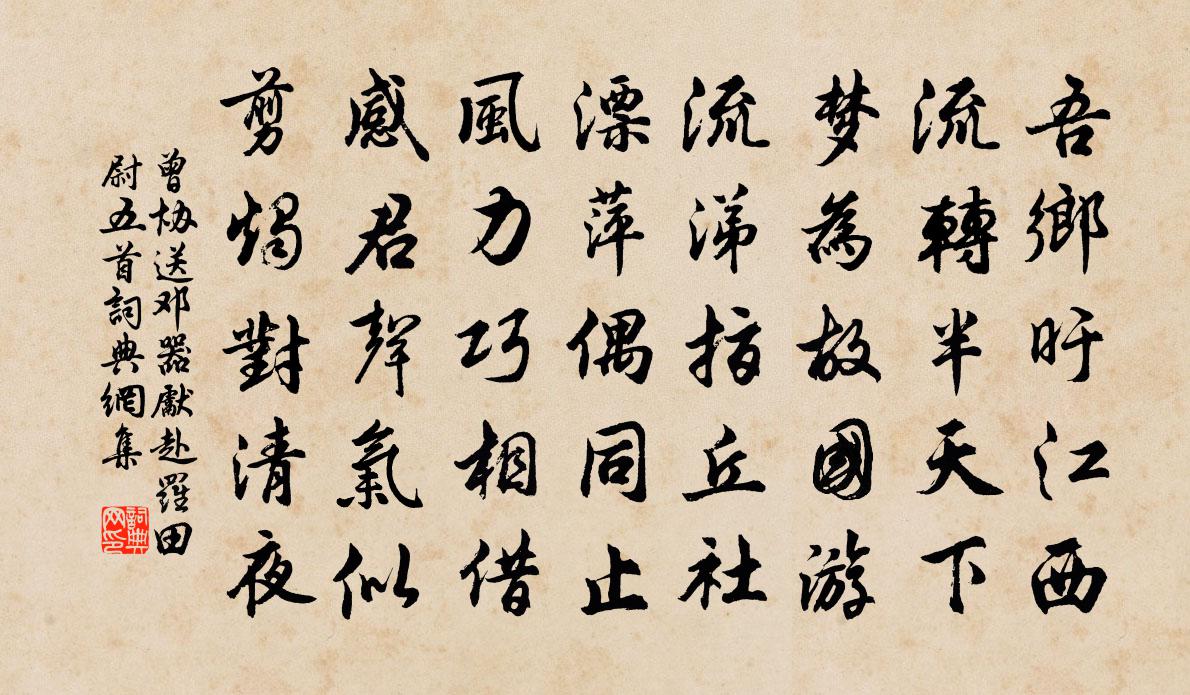 吾鄉旴江西
流轉半天下
梦為故國游
流涕指丘社
漂萍偶同止
風力巧相借
感君聲氣似
剪燭對清夜
曾协送邓器獻赴羅田
尉五首詞典網集
詞典网印